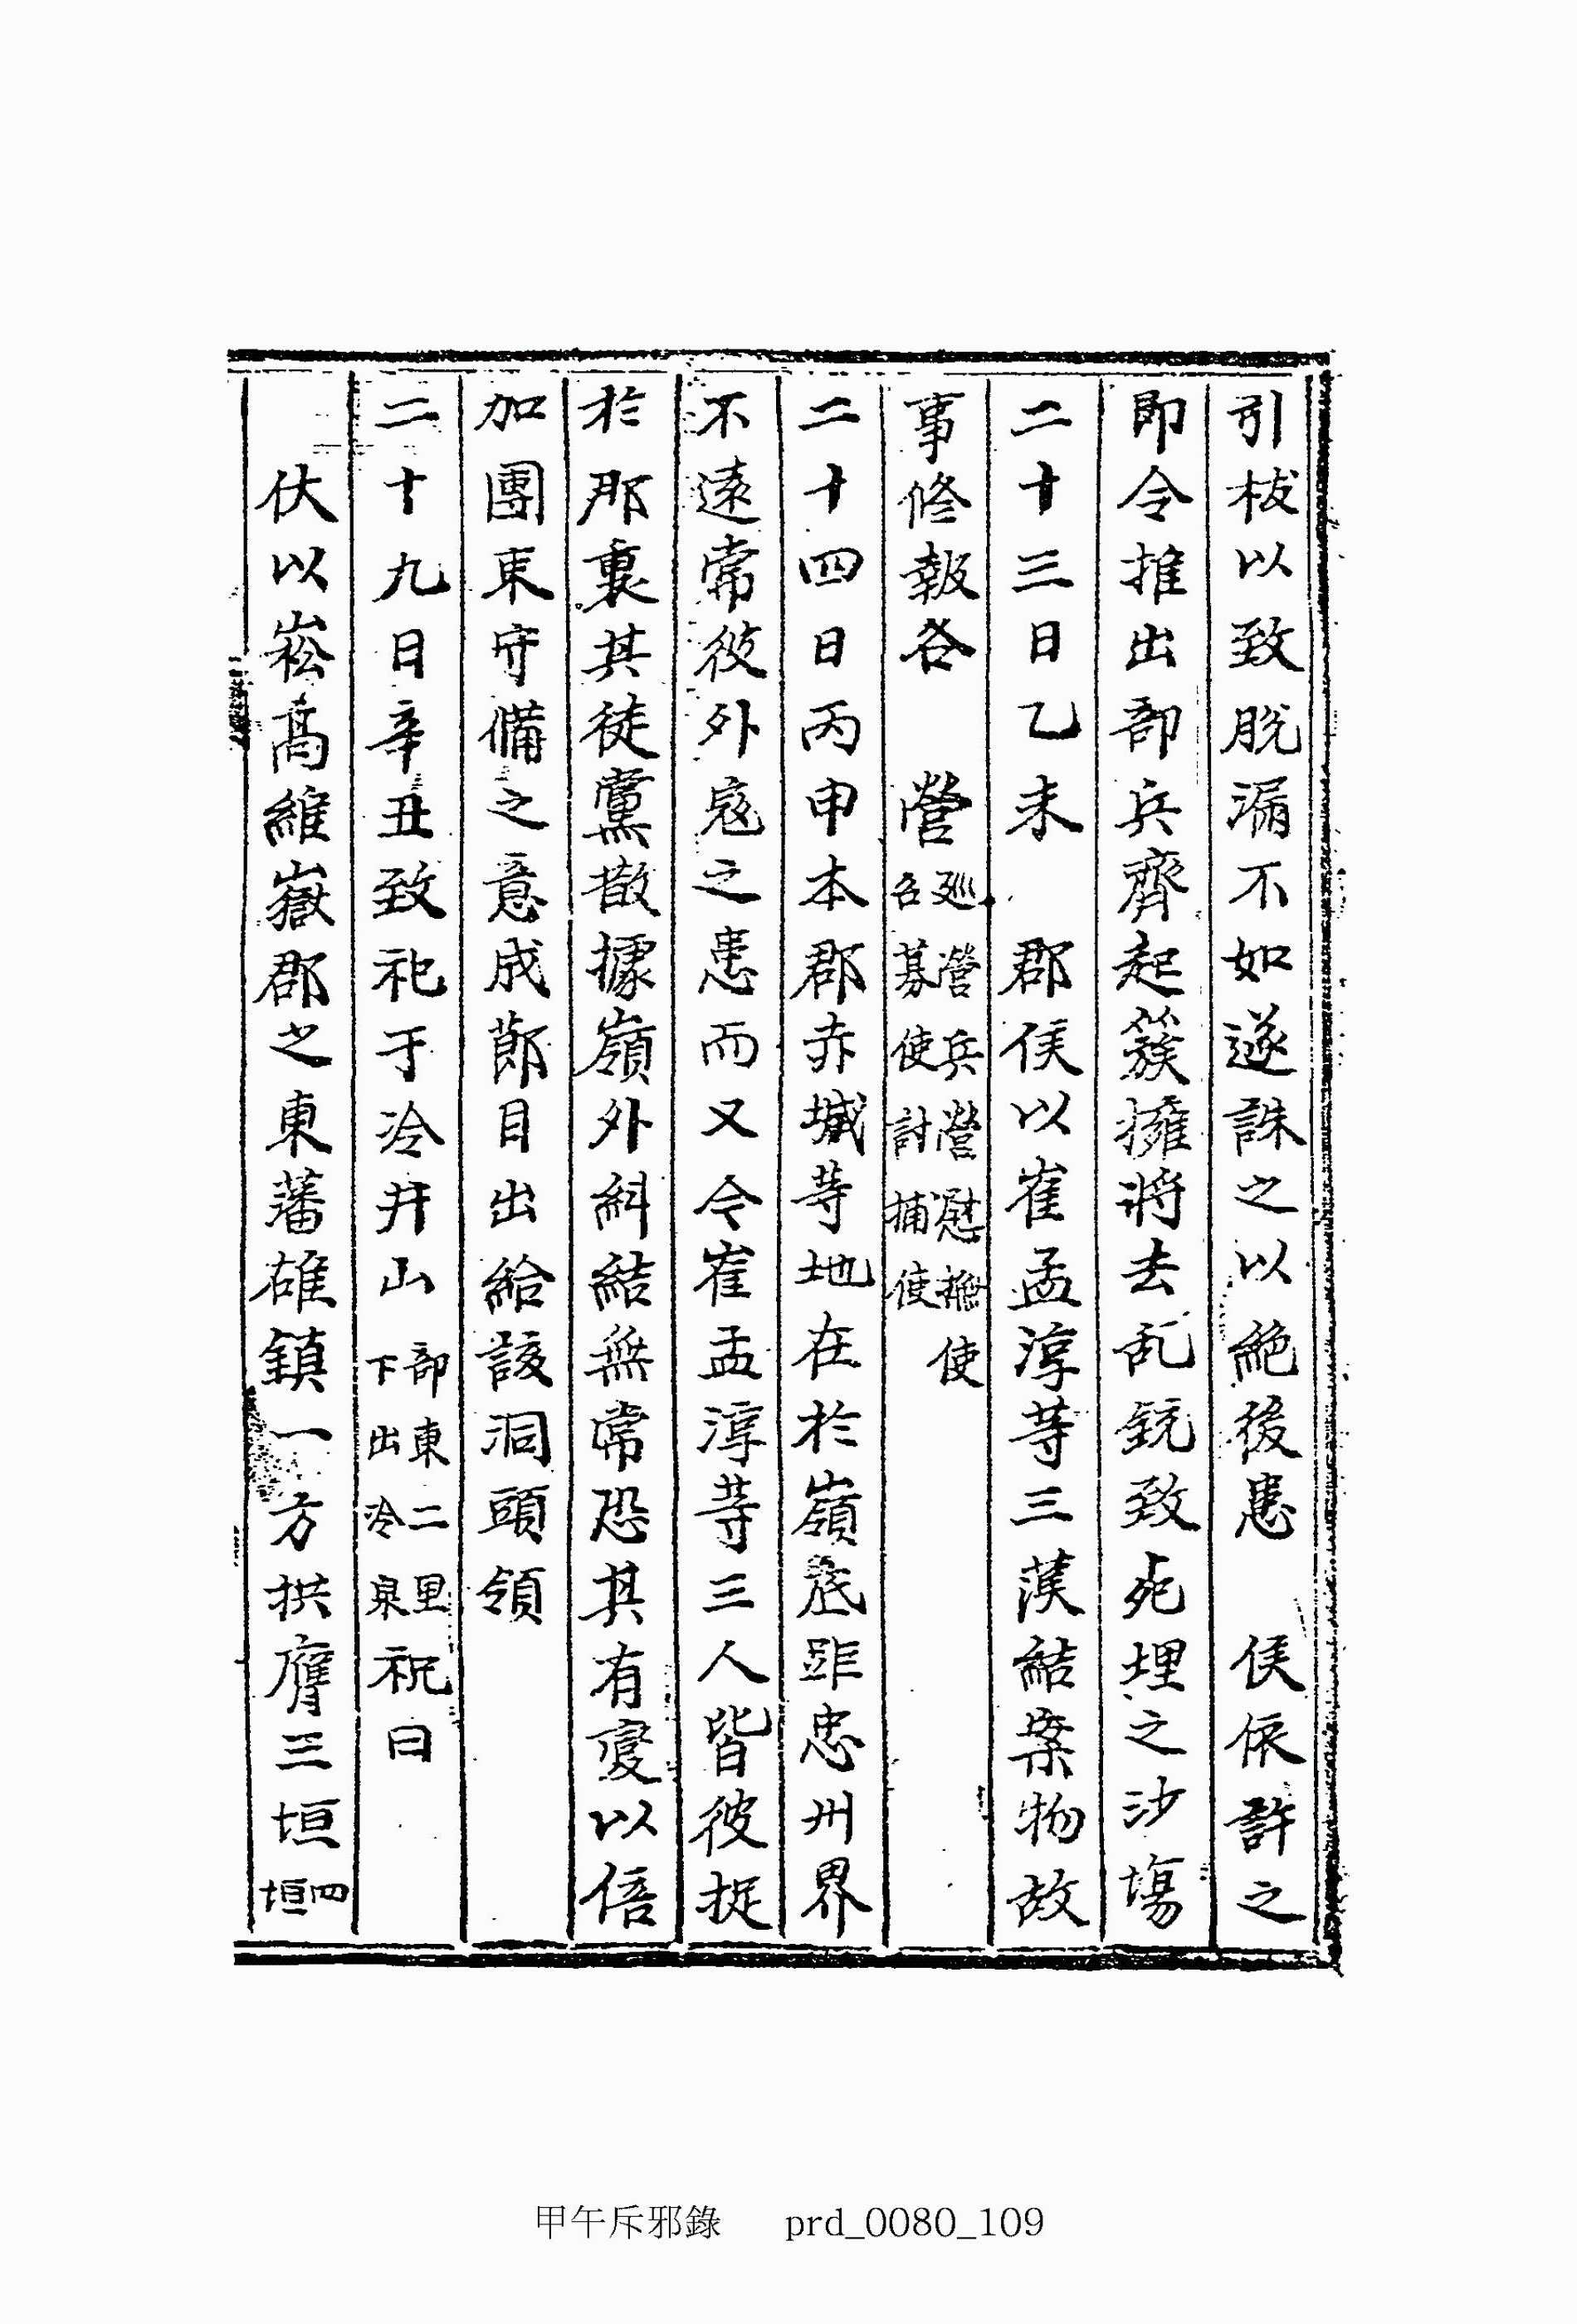 引柭以致脫漏不如遂誅之以絶後患 侯依許之
即令推出部兵齊起簇擁將去乱銃致死埋之沙塲
二十三日乙未 郡侯以崔孟淳等三漢結案物故
事修報各 營巡營兵營慰撫使召募使討捕使
二十四日丙申本郡赤城等地在於嶺底距忠州界
不遠常彼外寇之患而又令崔孟淳等三人皆彼捉
於那裏其徒黨散據嶺外糾結無常恐其有變以倍
加團束守備之意成節目出給該洞頭領
二十九日辛丑致祀于冷井山部東二里下出冷泉祝曰
伏以崧高維嶽郡之東藩雄鎮一方拱膺三垣四垣
甲午斥邪錄 prd_0080_109